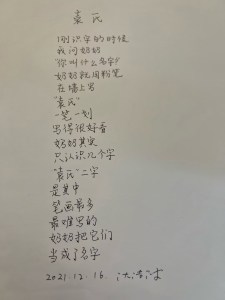 袁氏
刚识字的时候
我问奶奶
"你叫什么名字?"
奶奶就用粉笔
在墙上写
"袁氏"
一笔一划
写得很好看
奶奶其实
只认识几个字
"袁氏"二字
是其中
笔画最多
最难写的
奶奶把它们
当成了名字
2021.12.16.